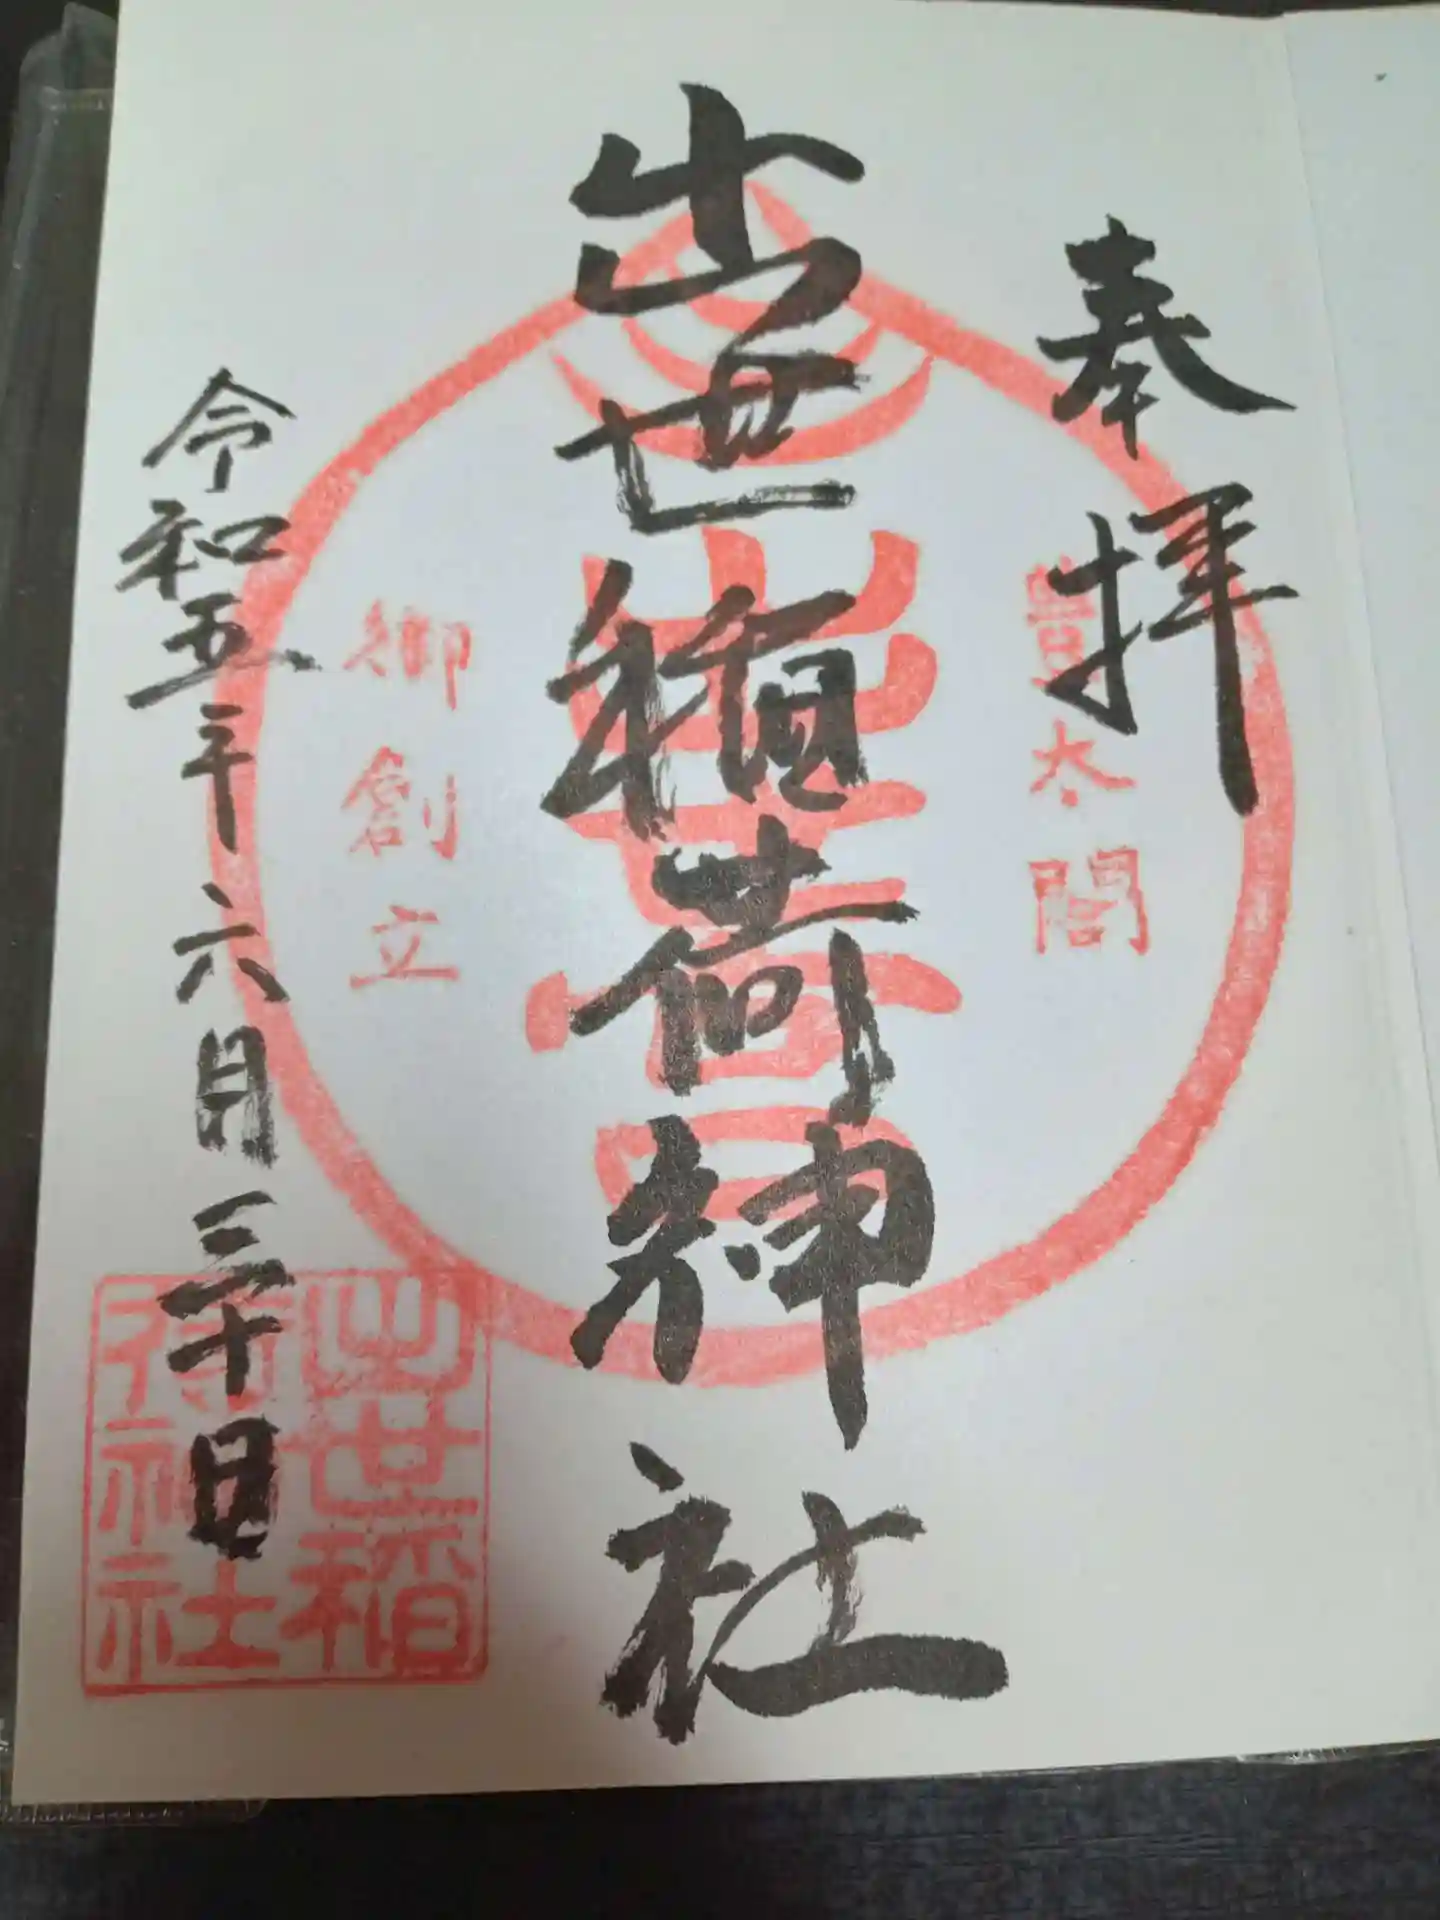 奉拝
豊太閤
出世稲荷神社
出世開運
御創立
令和五年六月三十日
出世稲
荷神社